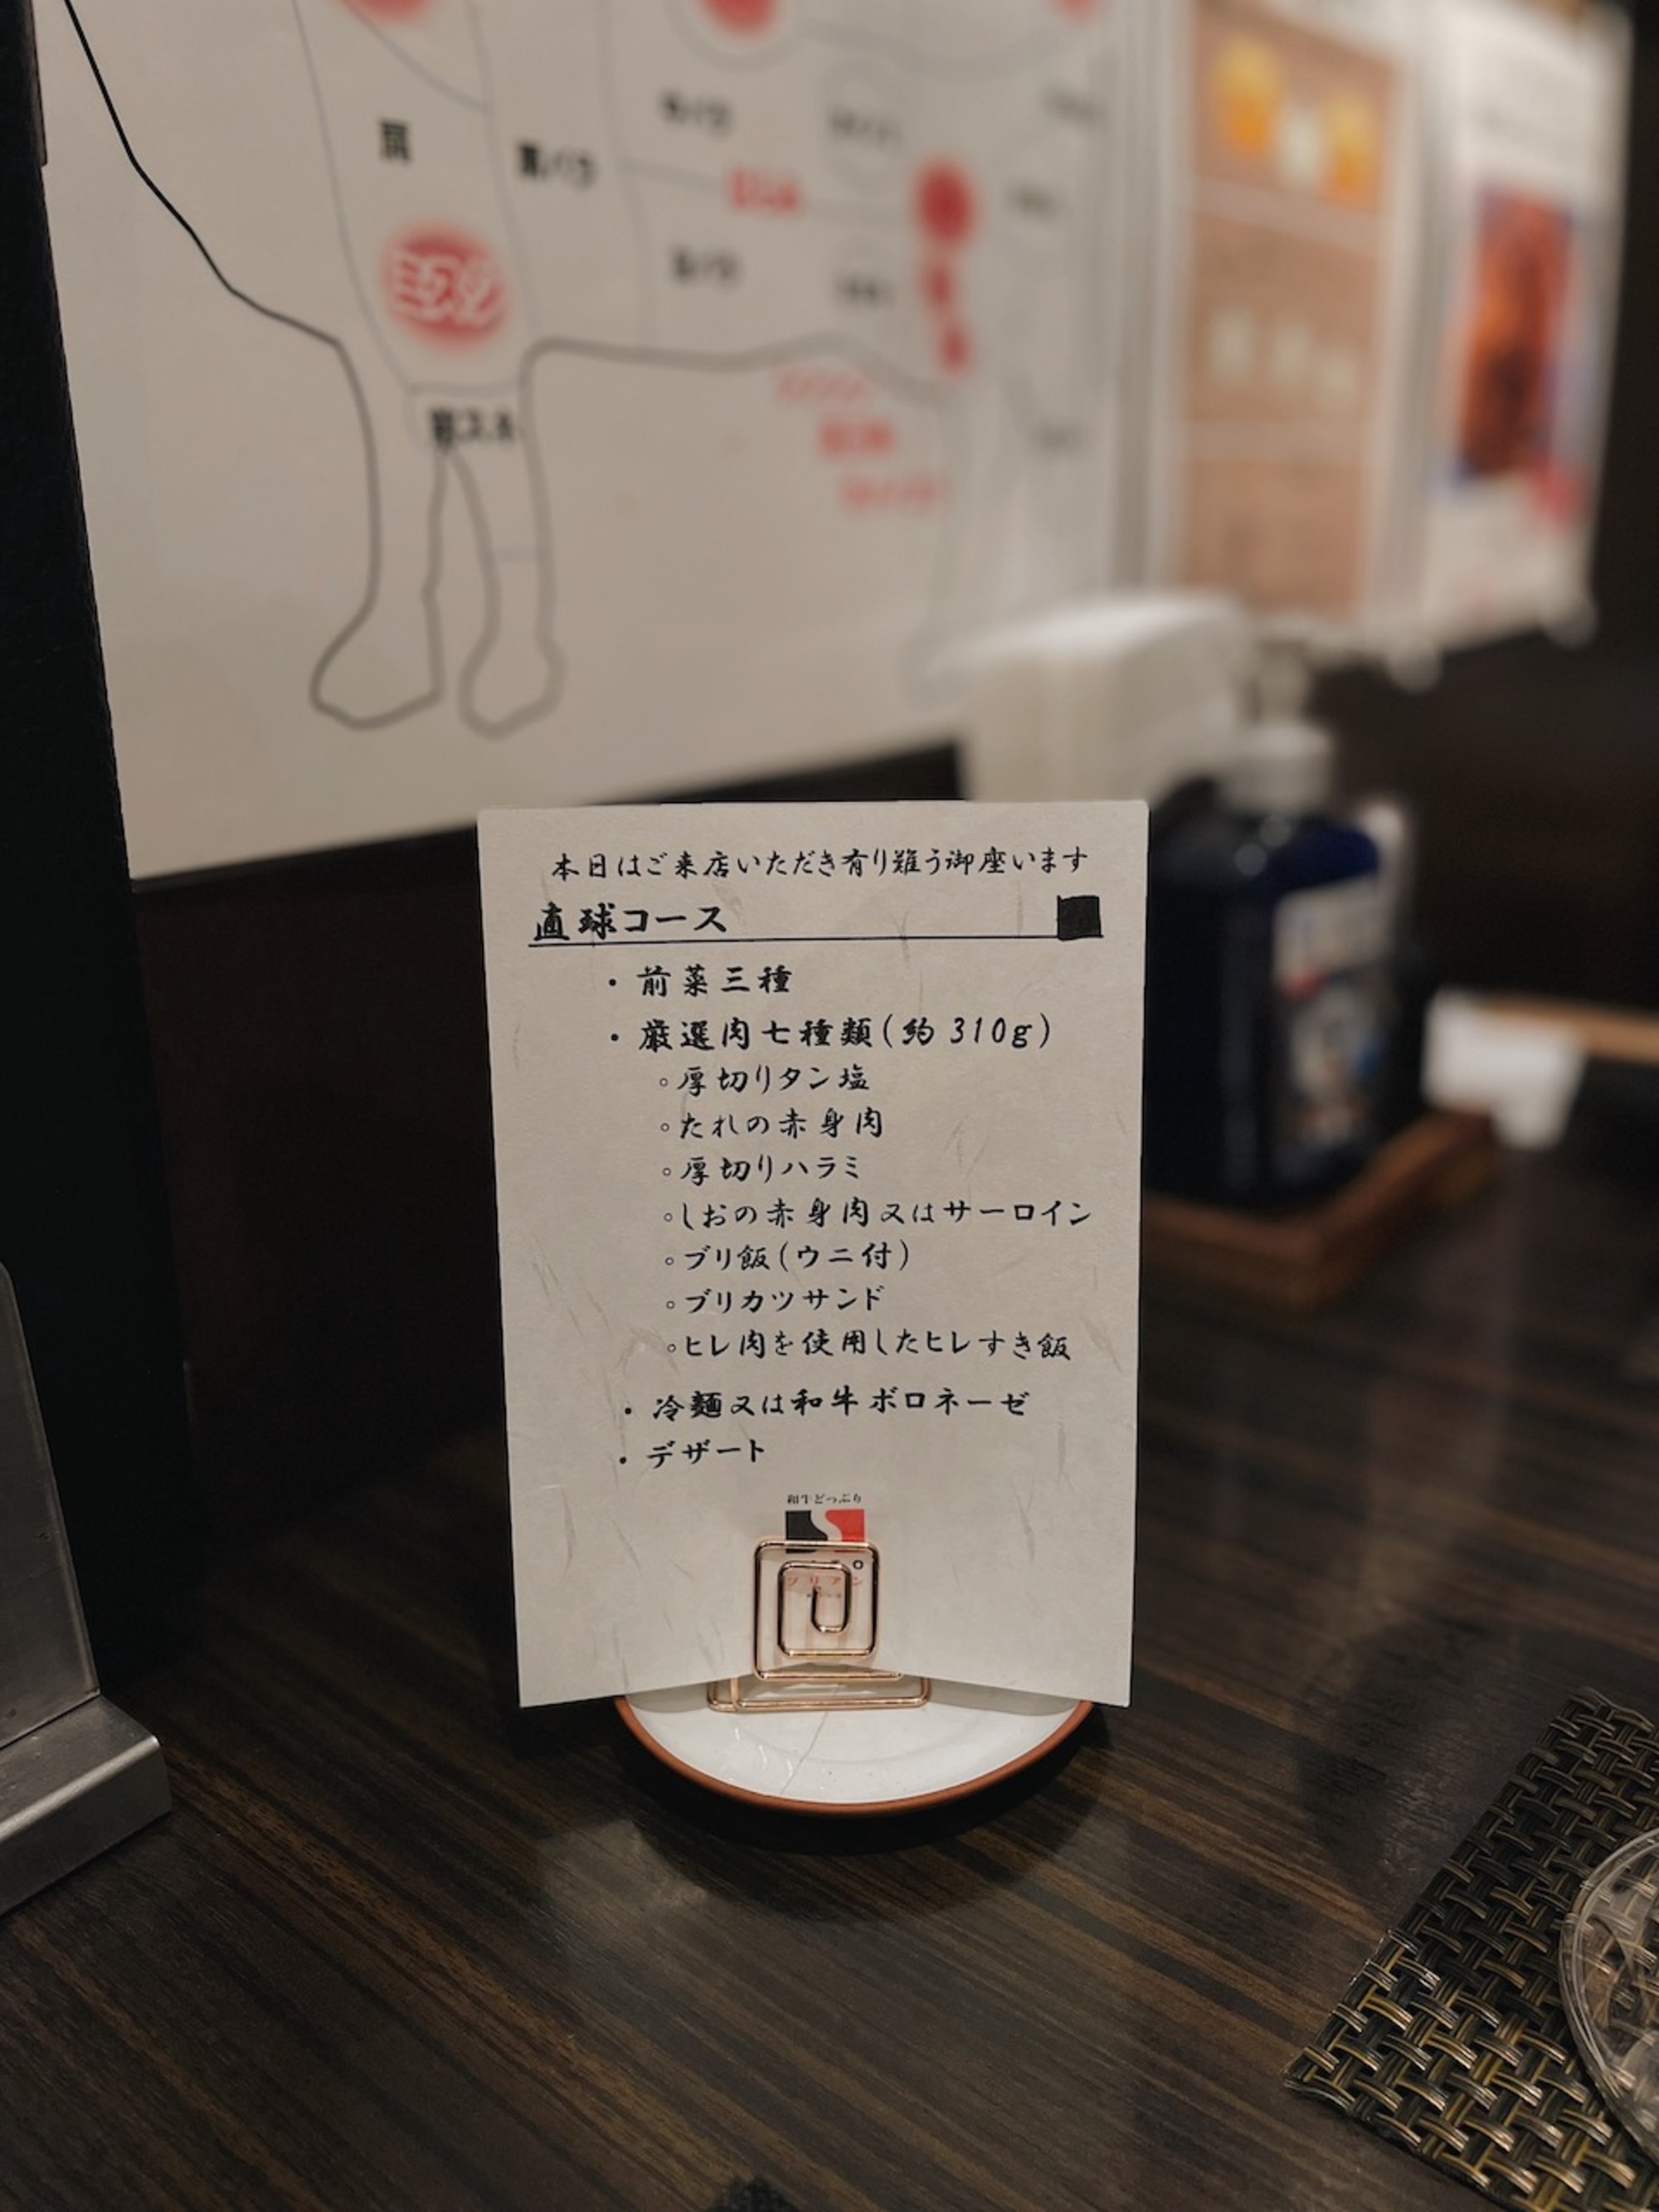 肩
肩バラ
ミスジ
前スネ
本日はご来店いただき有り難う御座います
直球コース
・前菜三種
・厳選肉七種類(約310g)
○厚切りタン塩
○たれの赤身肉
○厚切りハラミ
○しおの赤身肉又はサーロイン
○ブリ飯(ウニ付)
○ブリカツサンド
○ヒレ肉を使用したヒレすき飯
・冷麺又は和牛ボロネーゼ
・デザート
和牛どっぷり
ブリアン